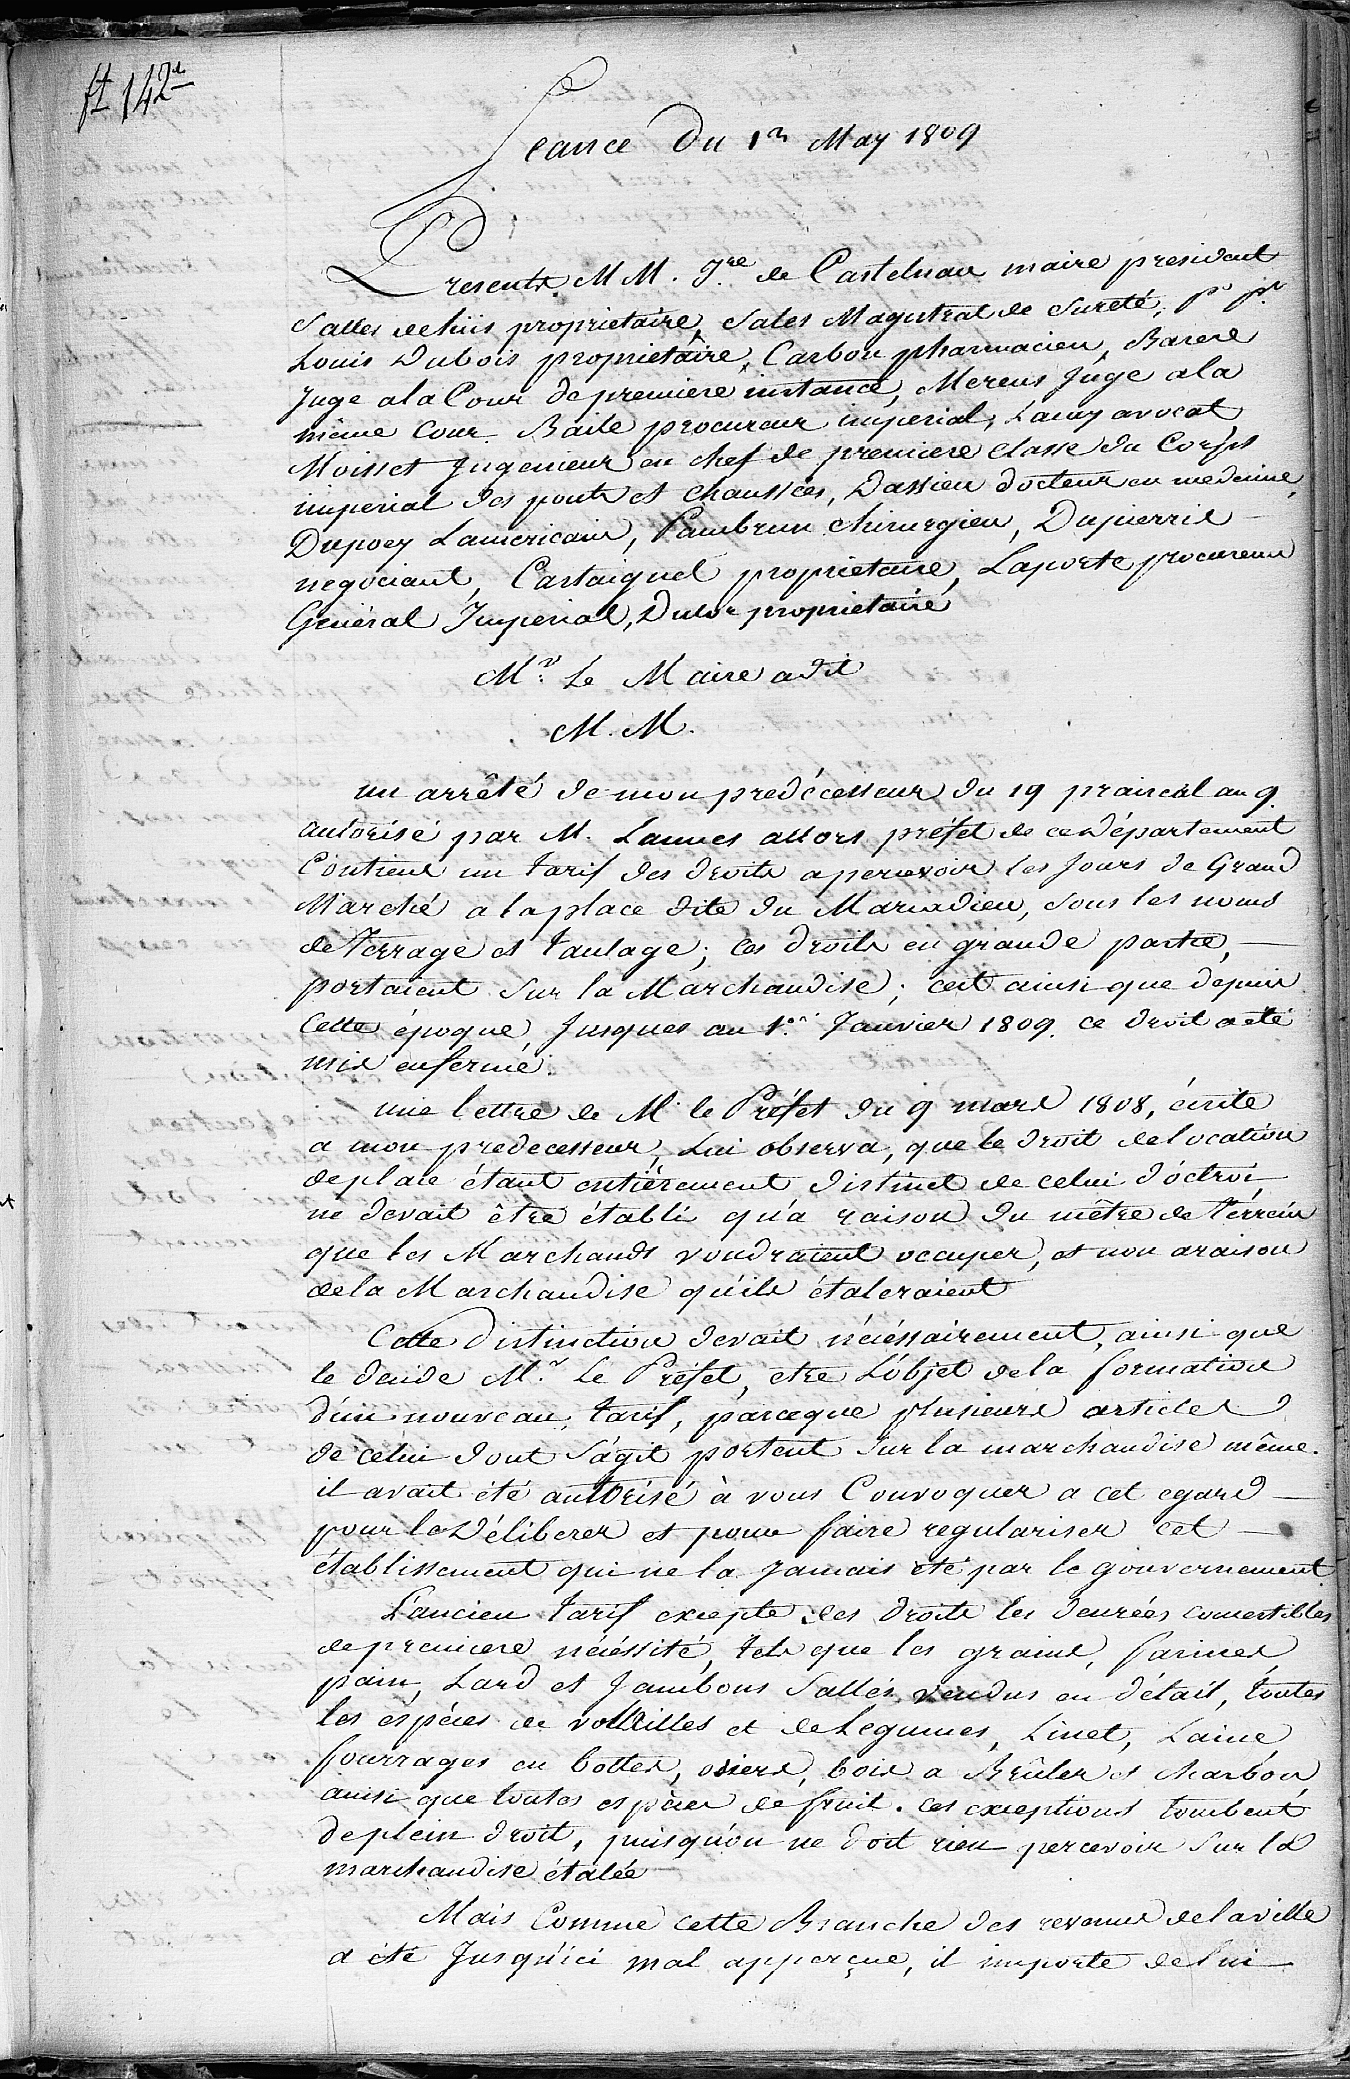 ft 142e
Seance Du 1er May 1809
Presents MM. Jre de Castelnau maire président
Salles dehiis proprietaire, Sales Magistrat de Sureté, pr pr
Louis Dubois proprietaire, Carbon pharmacien, Barere
Juge a la Cour de premiere instance, Merens Juge a la
même Cour. Baile procureur imperial, Lamy avocat
Moisset Ingenieur en chef de premiere Classe du Corps
imperial des ponts et chaussées, Dassieu docteur en medecine,
Dupoey Lamericain, Pambrun chirurgien, Dupierris
negociant, Castaignel proprietaire, Laporte procureur
Général Imperial, Dulor proprietaire
Mr. Le Maire a dit
M. M.
un arrêté de mon predécesseur du 19 prairial an 9.
autorisé par M. Lannes allors préfet de ce Département
Contient un tarif des droits a percevoir les Jours de Grand
Marché a la place dite du Marcadieu, Sous les noms
de Terrage et taulage; ces droits en grande partie,
portaient Sur la Marchandise; cest ainsi que depuis
cette époque, Jusques au 1er Janvier 1809. ce droit a eté
mis en fermé.
une lettre de M. le Préfet du 9 mars 1808, écrite
a mon predecesseur, Lui observa, que le droit de location
de place étant entiérement distinct de celui d'octroi
ne devait être établi qu'a raison du mêtre de térréin
que les Marchands voudraient occuper, et non araison
de la Marchandise quils étaleraient
Cette distinction devait nécéssairement, ainsi que
le decide Mr. Le Préfet, etre L'objet de la formation
d'un nouveau tarif, parceque plusieurs articles
de célui dont S'agit portent Sur la marchandise même.
il avait été autorisé à vous Convoquer a cet egard
pour la Déliberer et pour faire regulariser cet
établissement qui ne la Jamais été par le gouvernement
L'ancien tarif excepte des droits les denrées comestibles
de premiere nécéssité, tels que les grains, farines,
pain, Lard et Jambons Sallés vendus en détail, toutes
les espèces de vollailles et de Legumes, Linet, Laine,
fourrages en bottes, osiers, bois a Brûler et charbon
ainsi que toutes espèces de fruit. ces exceptions tombent
de plein droit, puisqu'on ne doit rien percevoir Sur la
marchandise étalée
Mais Comme cette Branche des revenus de la ville
a été Jusqu'ici mal apperçue, il importe de lui